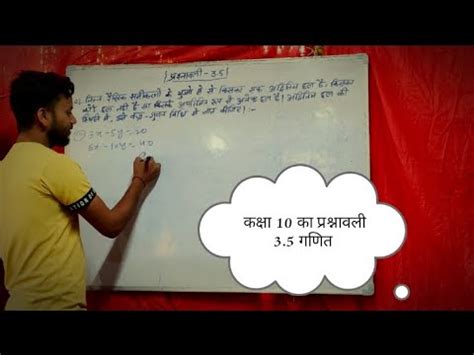 प्रश्नावली - 3.5
निम्न रैखिक समीकरणों के युग्मों में से किसका एक अद्वितीय हल है, किसका
कोई हल नहीं है या किसके अपरिमित रूप से अनेक हल हैं। अद्वितीय हल की
स्थिति में, उसे वज्र-गुणन विधि से ज्ञात कीजिए। :-
3x - 5y = 20
6x - 10y = 40
कक्षा 10 का प्रश्नावली
3.5 गणित